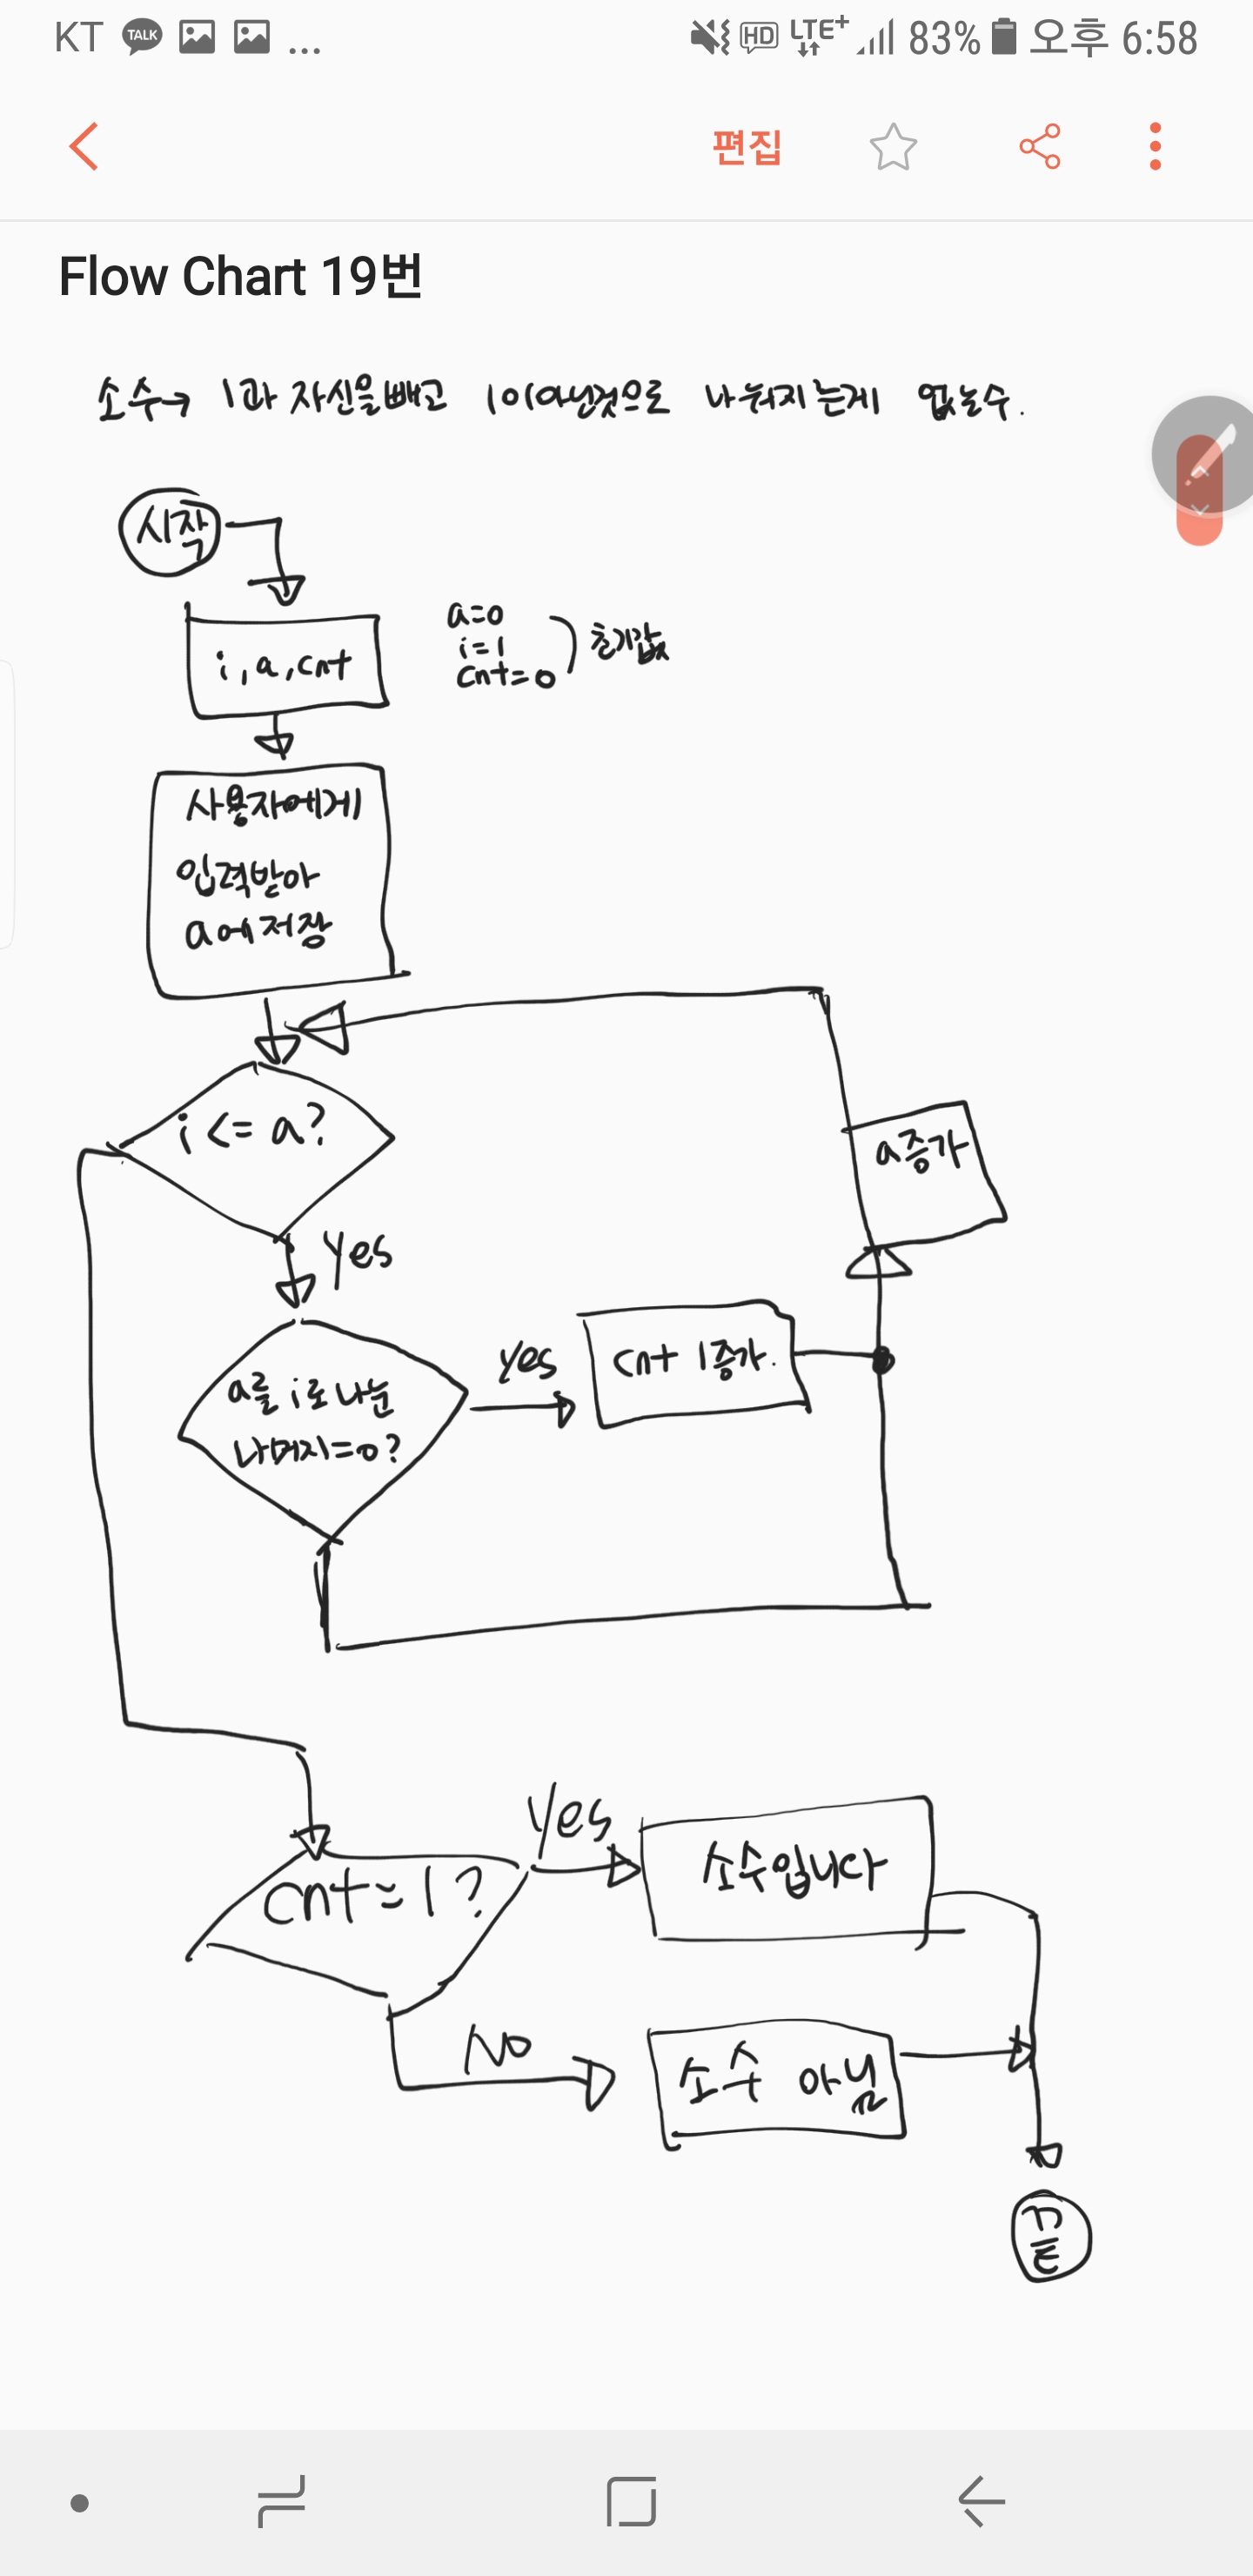 KT TALK ... HD LTE+ 83% 오후 6:58
편집
Flow Chart 19번
소수→ 1과 자신을빼고 1이아닌것으로 나눠지는게 없는수.
시작
i, a, cnt
a=0
i=1
cnt=0
초기값
사용자에게
입력받아
a에저장
i <= a?
a증가
Yes
a를 i로 나눈
나머지=0?
yes
cnt 1증가.
cnt=1?
Yes
소수입니다
No
소수 아님
끝